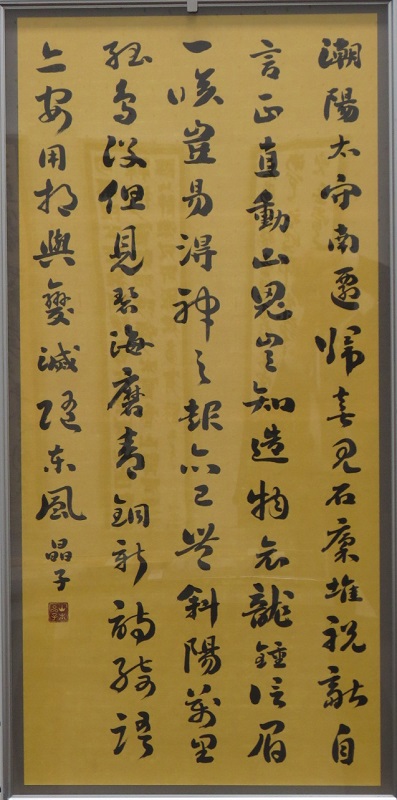 潮陽太守南遷歸喜見石廩堆祝融自
言正直動山鬼豈知造物哀龍鍾信眉
一咲豈易得神之報亦已豐斜陽萬里
孤鳥沒但見碧海磨青銅新詩綺語
亦安用相與變滅隨東風 晶子